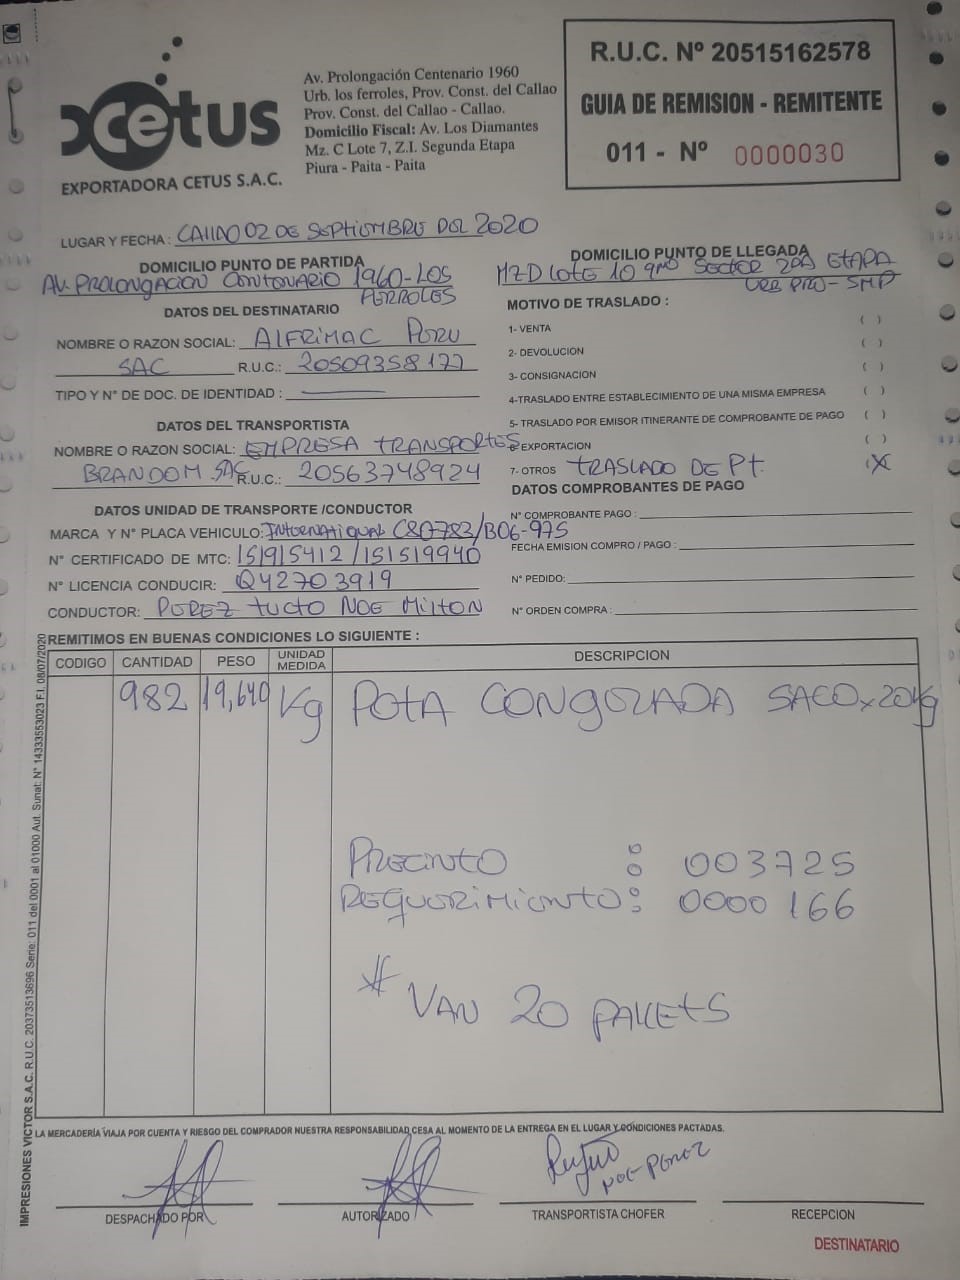 cetus
EXPORTADORA CETUS S.A.C.
Av. Prolongación Centenario 1960
Urb. los ferroles, Prov. Const. del Callao
Prov. Const. del Callao - Callao.
Domicilio Fiscal: Av. Los Diamantes
Mz. C Lote 7, Z.I. Segunda Etapa
Piura - Paita - Paita
R.U.C. Nº 20515162578
GUIA DE REMISION - REMITENTE
011 - Nº 0000030
LUGAR Y FECHA : CAllAO 02 DE SEPTIEMBRE DEL 2020
DOMICILIO PUNTO DE PARTIDA
AV. PROLONGACION CENTENARIO 1960-LOS
FERROLES
DOMICILIO PUNTO DE LLEGADA
MZ D LOTE 10 9no SECTOR 2DA ETAPA
URB PRO - SMP
DATOS DEL DESTINATARIO
NOMBRE O RAZON SOCIAL: ALFRIMAC PERU
SAC R.U.C.: 20509358177
TIPO Y N° DE DOC. DE IDENTIDAD :
MOTIVO DE TRASLADO :
1- VENTA ( )
2- DEVOLUCION ( )
3- CONSIGNACION ( )
4-TRASLADO ENTRE ESTABLECIMIENTO DE UNA MISMA EMPRESA ( )
5- TRASLADO POR EMISOR ITINERANTE DE COMPROBANTE DE PAGO ( )
6- EXPORTACION ( )
7- OTROS TRASLADO DE Pt. (X)
DATOS DEL TRANSPORTISTA
NOMBRE O RAZON SOCIAL: EMPRESA TRANSPORTES
BRANDOM SAC R.U.C.: 20563748924
DATOS COMPROBANTES DE PAGO
N° COMPROBANTE PAGO :
FECHA EMISION COMPRO / PAGO :
N° PEDIDO:
N° ORDEN COMPRA :
DATOS UNIDAD DE TRANSPORTE /CONDUCTOR
MARCA Y N° PLACA VEHICULO: INTERNATIONAL C8O783/B06-975
N° CERTIFICADO DE MTC: 151915412 /151519940
N° LICENCIA CONDUCIR: Q42703919
CONDUCTOR: PEREZ TUCTO NOE MILTON
REMITIMOS EN BUENAS CONDICIONES LO SIGUIENTE :
CODIGO CANTIDAD PESO UNIDAD MEDIDA DESCRIPCION
982 19,640 Kg POTA CONGELADA SACO x 20Kg
PRECINTO : 003725
REQUERIMIENTO : 0000166
* VAN 20 PALLETS
IMPRESIONES VICTOR S.A.C. R.U.C. 20373513696 Serie: 011 del 0001 al 01000 Aut. Sunat: N° 14333553023 F.I. 08/07/2020
LA MERCADERÍA VIAJA POR CUENTA Y RIESGO DEL COMPRADOR NUESTRA RESPONSABILIDAD CESA AL MOMENTO DE LA ENTREGA EN EL LUGAR Y CONDICIONES PACTADAS.
NOE PEREZ
DESPACHADO POR
AUTORIZADO
TRANSPORTISTA CHOFER
RECEPCION
DESTINATARIO